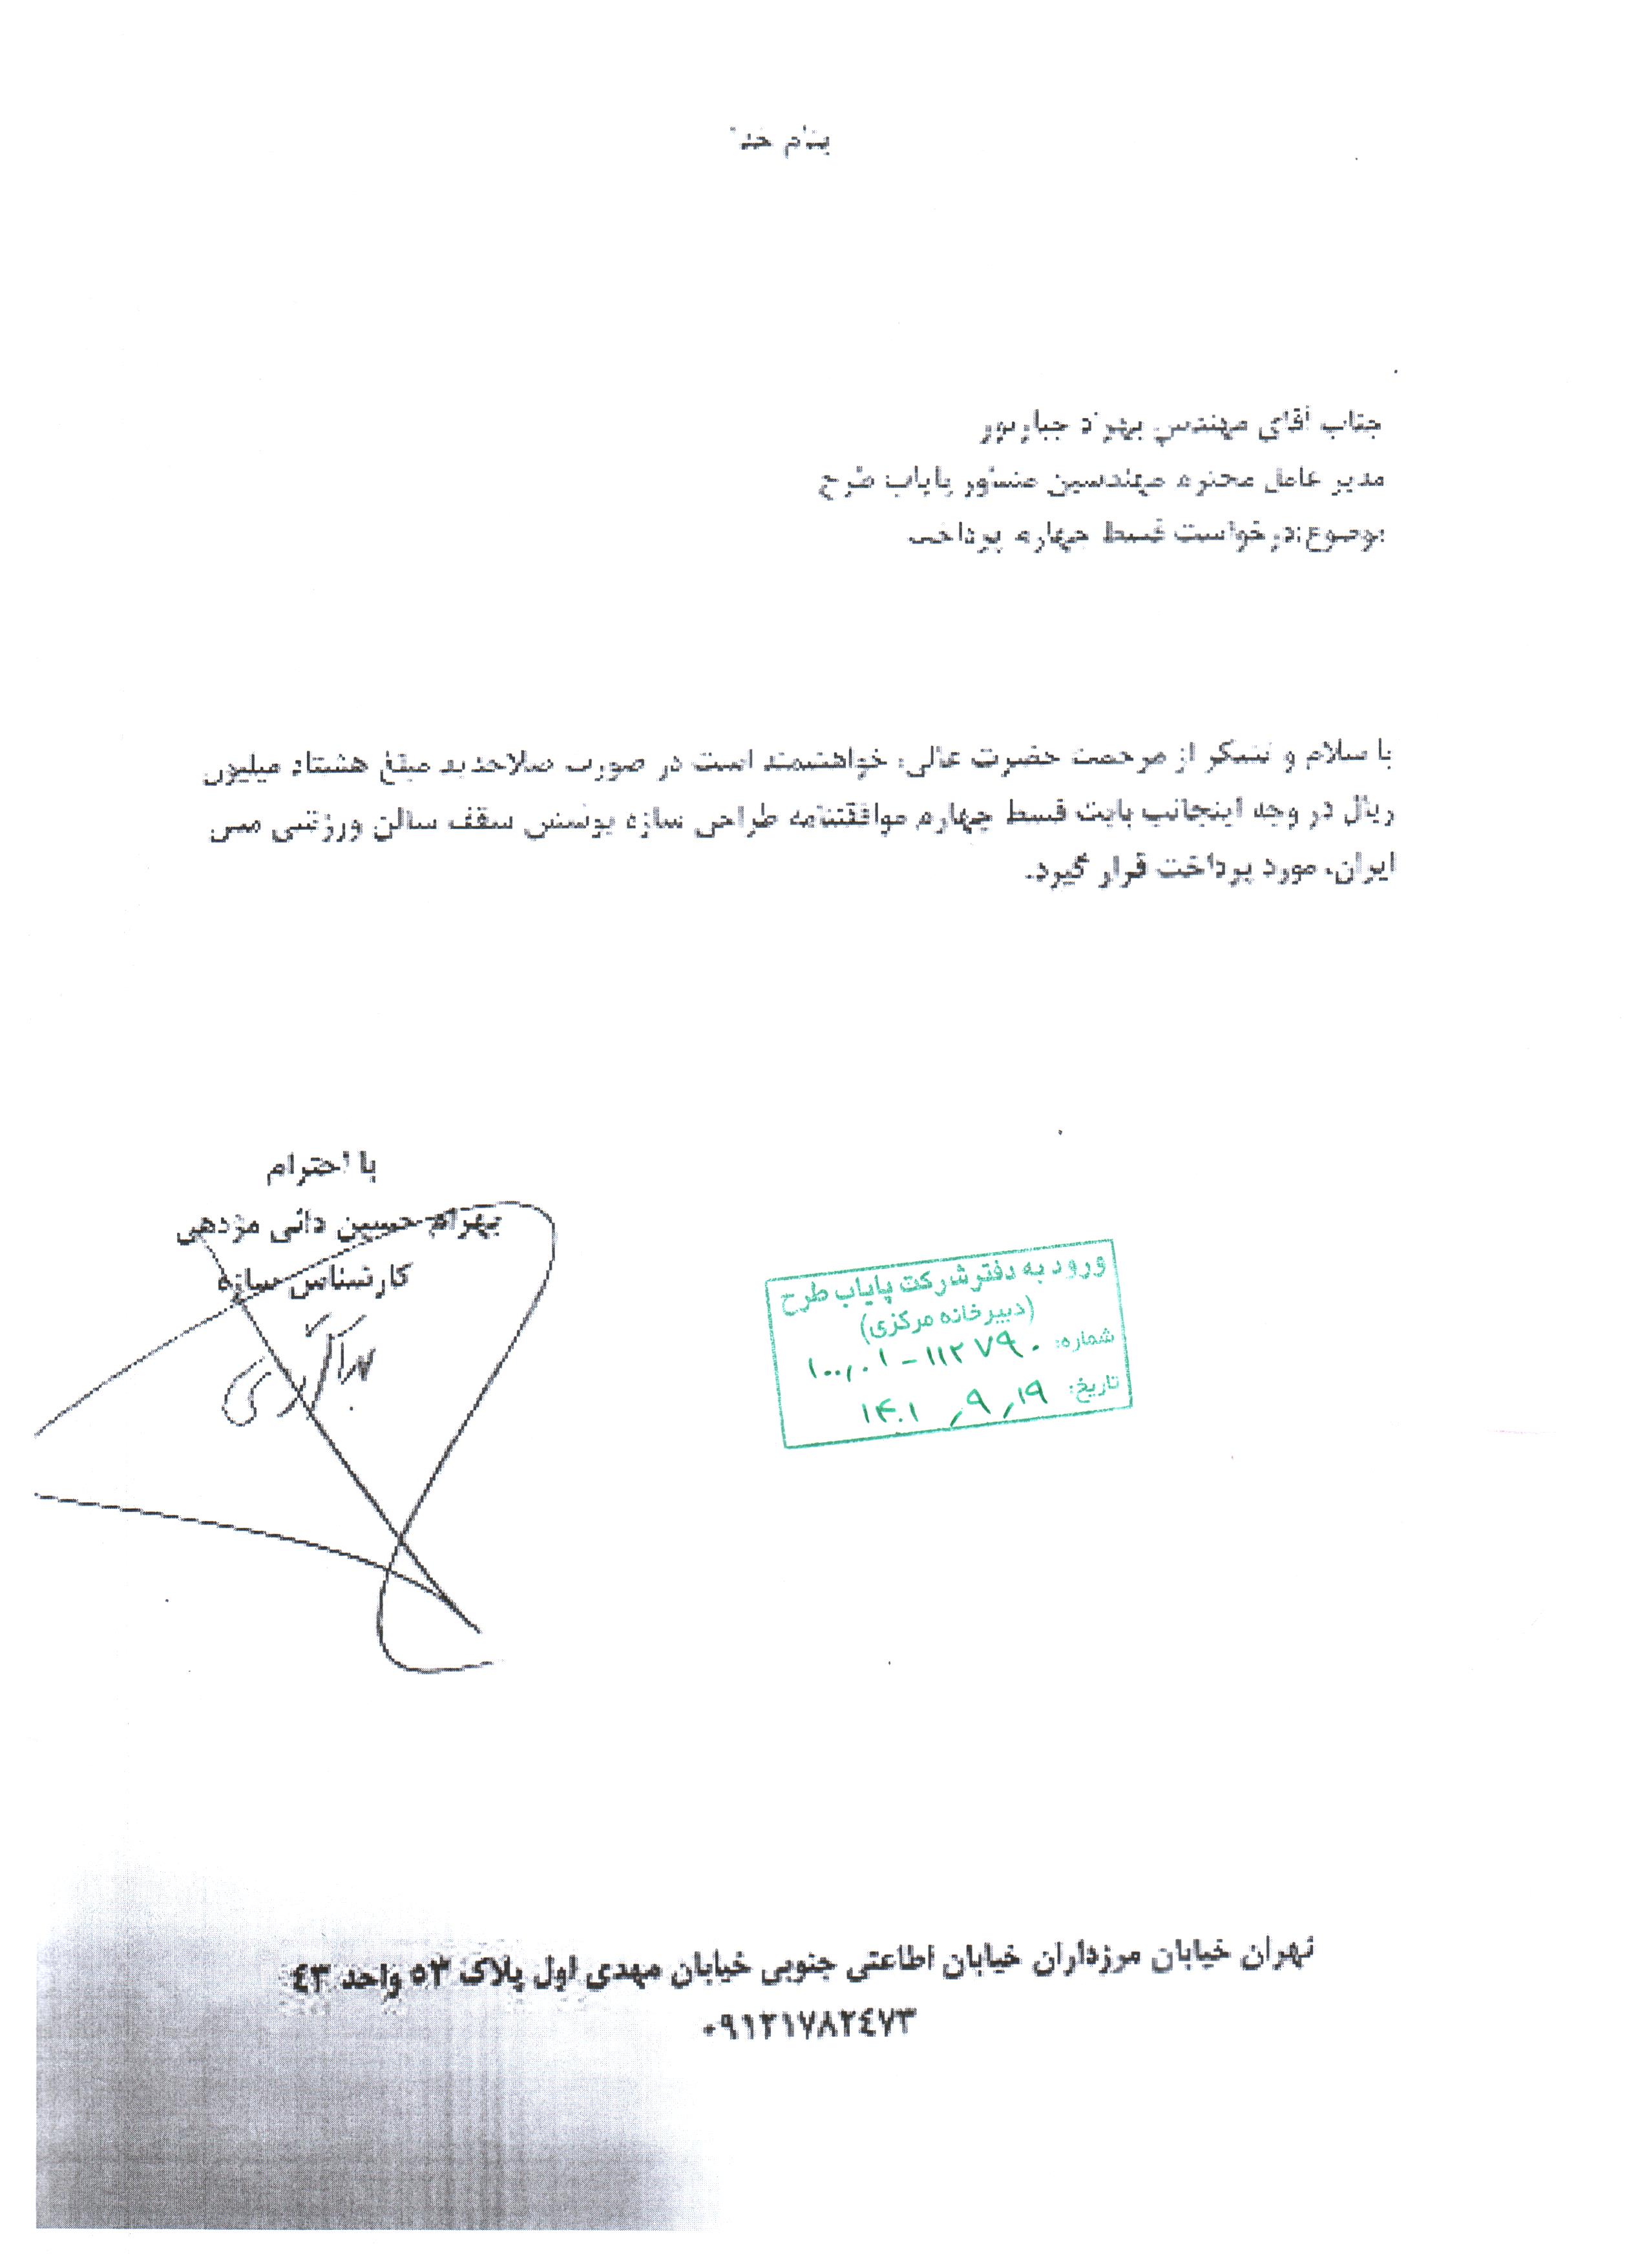 بنام خدا
جناب آقای مهندس بهزاد جبارپور
مدیر عامل محترم مهندسین مشاور پایاب طرح
موضوع:درخواست قسط چهارم پرداخت
با سلام و تشکر از مرحمت حضرت عالی، خواهشمند است در صورت صلاحدید مبلغ هشتاد میلیون
ریال در وجه اینجانب بابت قسط چهارم موافقتنامه طراحی سازه پوشش سقف سالن ورزشی مس
ایران، مورد پرداخت قرار گیرد.
با احترام
بهرام حسین دائی مژدهی
کارشناس سازه
ورود به دفتر شرکت پایاب طرح
(دبیرخانه مرکزی)
شماره: ۱۰۰٫۰۱-۱۱۲۷۹۰
تاریخ: ۱۴۰۱٫۹٫۱۹
تهران خیابان مرزداران خیابان اطاعتی جنوبی خیابان مهدی اول پلاک ۵۳ واحد ٤۳
۰۹۱۲۱۷۸۲٤۷۳